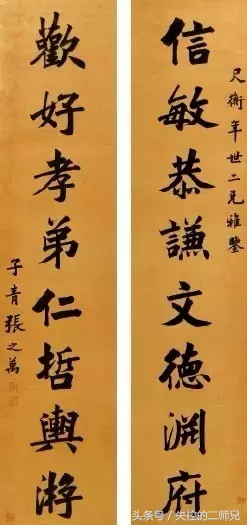 尺衡年世二兄雅鑒
信敏恭謙文德淵府
歡好孝弟仁哲輿游
子青張之萬
头条号/失控的二师兄